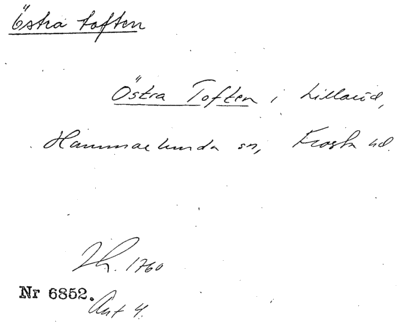 Östra toften
Östra Toften i Lillaröd,
Hammarlunda sn, Frosta hd.
Th. 1760
Nr 6852.
Akt 4.